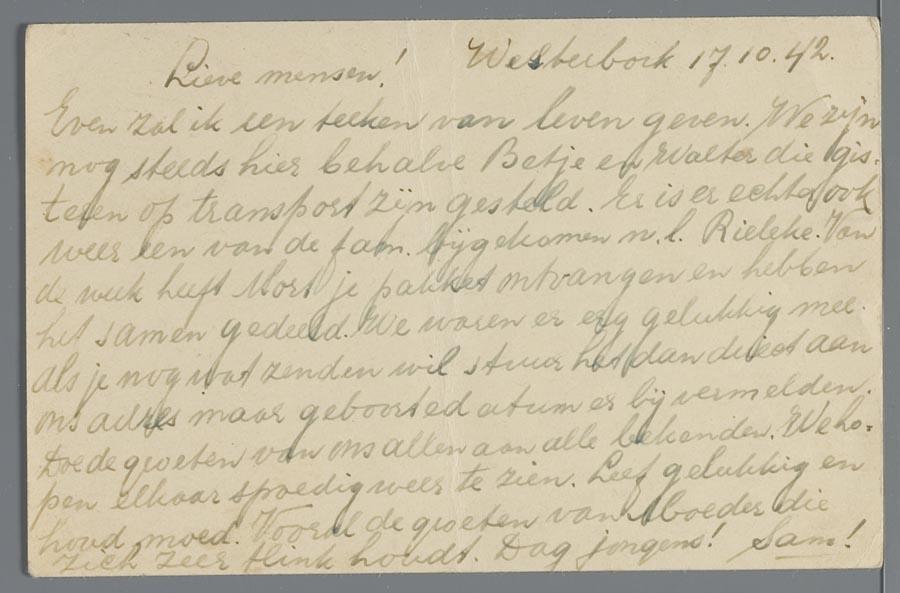 Westerbork 17.10.42.
Lieve mensen!
Even zal ik een teeken van leven geven. We zijn
nog steeds hier behalve Betje en Walter die gis-
teren op transport zijn gesteld. Er is er echter ook
weer een van de fam. bijgekomen n.l. Rieleke. Van
de week heeft Mort je pakket ontvangen en hebben
het samen gedeeld. We waren er erg gelukkig mee.
als je nog wat zenden wil stuur het dan direct aan
ons adres maar geboortedatum er bij vermelden.
Doe de groeten van ons allen aan alle bekenden. We ho-
pen elkaar spoedig weer te zien. Leef gelukkig en
houd moed. Vooral de groeten van Moeder die
zich zeer flink houdt. Dag jongens! Sam!